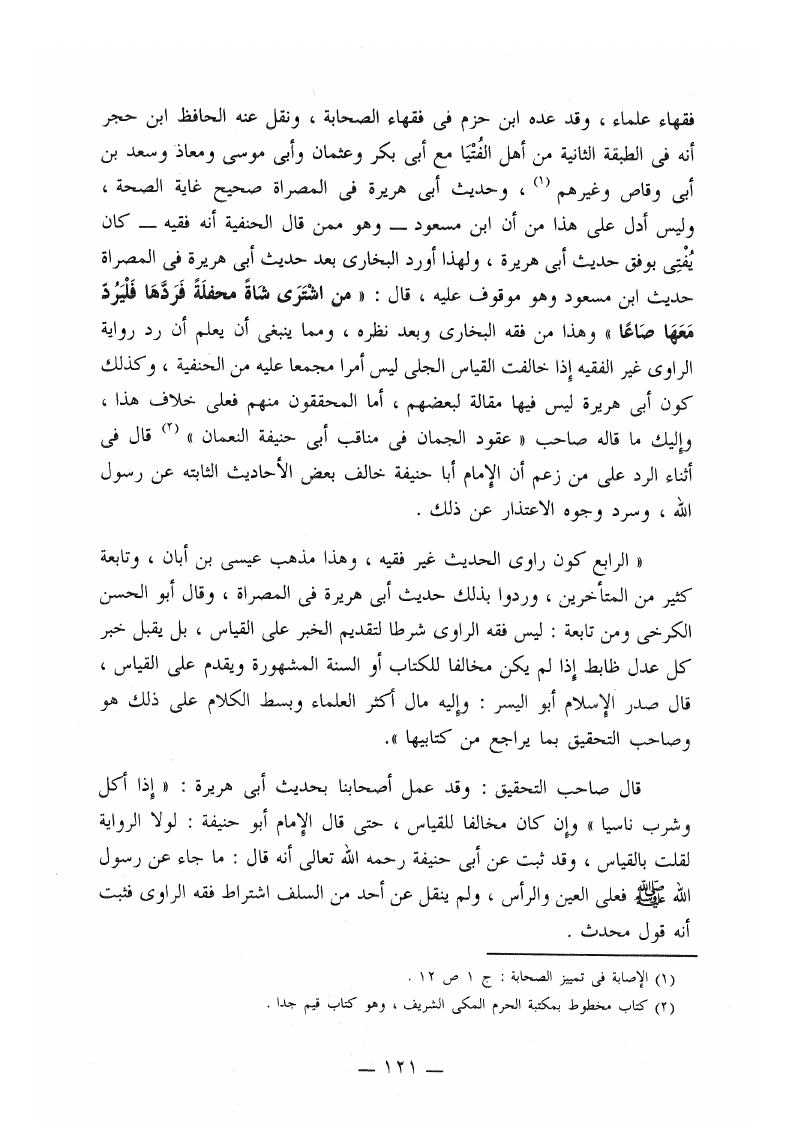 فقهاء علماء ، وقد عده ابن حزم فى فقهاء الصحابة ، ونقل عنه الحافظ ابن حجر
أنه فى الطبقة الثانية من أهل الفُتْيَا مع أبى بكر وعثمان وأبى موسى ومعاذ وسعد بن
أبى وقاص وغيرهم (١) ، وحديث أبى هريرة فى المصراة صحيح غاية الصحة ،
وليس أدل على هذا من أن ابن مسعود — وهو ممن قال الحنفية أنه فقيه — كان
يُفْتِى بوفق حديث أبى هريرة ، ولهذا أورد البخارى بعد حديث أبى هريرة فى المصراة
حديث ابن مسعود وهو موقوف عليه ، قال : « من اشْتَرَى شَاةً محفلَةً فَرَدَّهَا فَلْيَرُدّ
مَعَهَا صَاعًا » وهذا من فقه البخارى وبعد نظره ، ومما ينبغى أن يعلم أن رد رواية
الراوى غير الفقيه إذا خالفت القياس الجلى ليس أمرا مجمعا عليه من الحنفية ، وكذلك
كون أبى هريرة ليس فيها مقالة لبعضهم ، أما المحققون منهم فعلى خلاف هذا ،
وإليك ما قاله صاحب « عقود الجمان فى مناقب أبى حنيفة النعمان » (٢) قال فى
أثناء الرد على من زعم أن الإمام أبا حنيفة خالف بعض الأحاديث الثابته عن رسول
الله ، وسرد وجوه الاعتذار عن ذلك .
« الرابع كون راوى الحديث غير فقيه ، وهذا مذهب عيسى بن أبان ، وتابعة
كثير من المتأخرين ، وردوا بذلك حديث أبى هريرة فى المصراة ، وقال أبو الحسن
الكرخى ومن تابعة : ليس فقه الراوى شرطا لتقديم الخبر على القياس ، بل يقبل خبر
كل عدل ظابط إذا لم يكن مخالفا للكتاب أو السنة المشهورة ويقدم على القياس ،
قال صدر الإسلام أبو اليسر : وإليه مال أكثر العلماء وبسط الكلام على ذلك هو
وصاحب التحقيق بما يراجع من كتابيها ».
قال صاحب التحقيق : وقد عمل أصحابنا بحديث أبى هريرة : « إذا أكل
وشرب ناسيا » وإن كان مخالفا للقياس ، حتى قال الإمام أبو حنيفة : لولا الرواية
لقلت بالقياس ، وقد ثبت عن أبى حنيفة رحمه الله تعالى أنه قال : ما جاء عن رسول
الله ﷺ فعلى العين والرأس ، ولم ينقل عن أحد من السلف اشتراط فقه الراوى فثبت
أنه قول محدث .
(١) الإصابة فى تمييز الصحابة : ج ١ ص ١٢ .
(٢) كتاب مخطوط بمكتبة الحرم المكى الشريف ، وهو كتاب قيم جدا .
— ١٢١ —